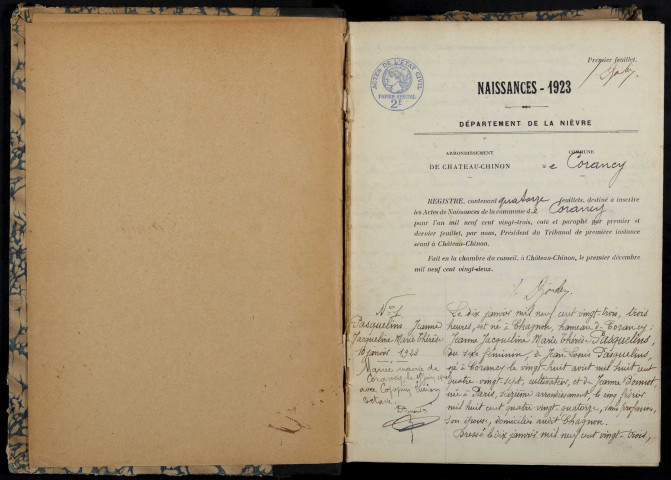 Premier feuillet.
ACTES DE L'ÉTAT CIVIL
PAPIER SPÉCIAL
2F
NAISSANCES - 1923
DÉPARTEMENT DE LA NIÈVRE
ARRONDISSEMENT
DE CHATEAU-CHINON
COMMUNE
de Corancy
REGISTRE, contenant quatorze feuillets, destiné à inscrire
les Actes de Naissances de la commune de Corancy
pour l'an mil neuf cent vingt-trois, coté et paraphé par premier et
dernier feuillet, par nous, Président du Tribunal de première instance
séant à Château-Chinon.
Fait en la chambre du conseil, à Château-Chinon, le premier décembre
mil neuf cent vingt-deux.
No 1
Pasquelins Jeanne
Jacqueline Marie Thérèse
10 janvier 1923
Mariée mairie de
Corancy le
avec
Octave
Le dix janvier mil neuf cent vingt-trois, trois
heures, est né à Chagnon, hameau de Corancy :
Jeanne Jacqueline Marie Thérèse Pasquelins,
du sexe féminin, de Jean Louis Pasquelins,
né à Corancy le vingt-huit avril mil huit cent
quatre vingt-sept, cultivateur, et de Jeanne Bonnet,
née à Paris, sixième arrondissement, le cinq février
mil huit cent quatre vingt-quatorze, sans profession,
son épouse, domiciliés audit Chagnon.
Dressé le dix janvier mil neuf cent vingt-trois,